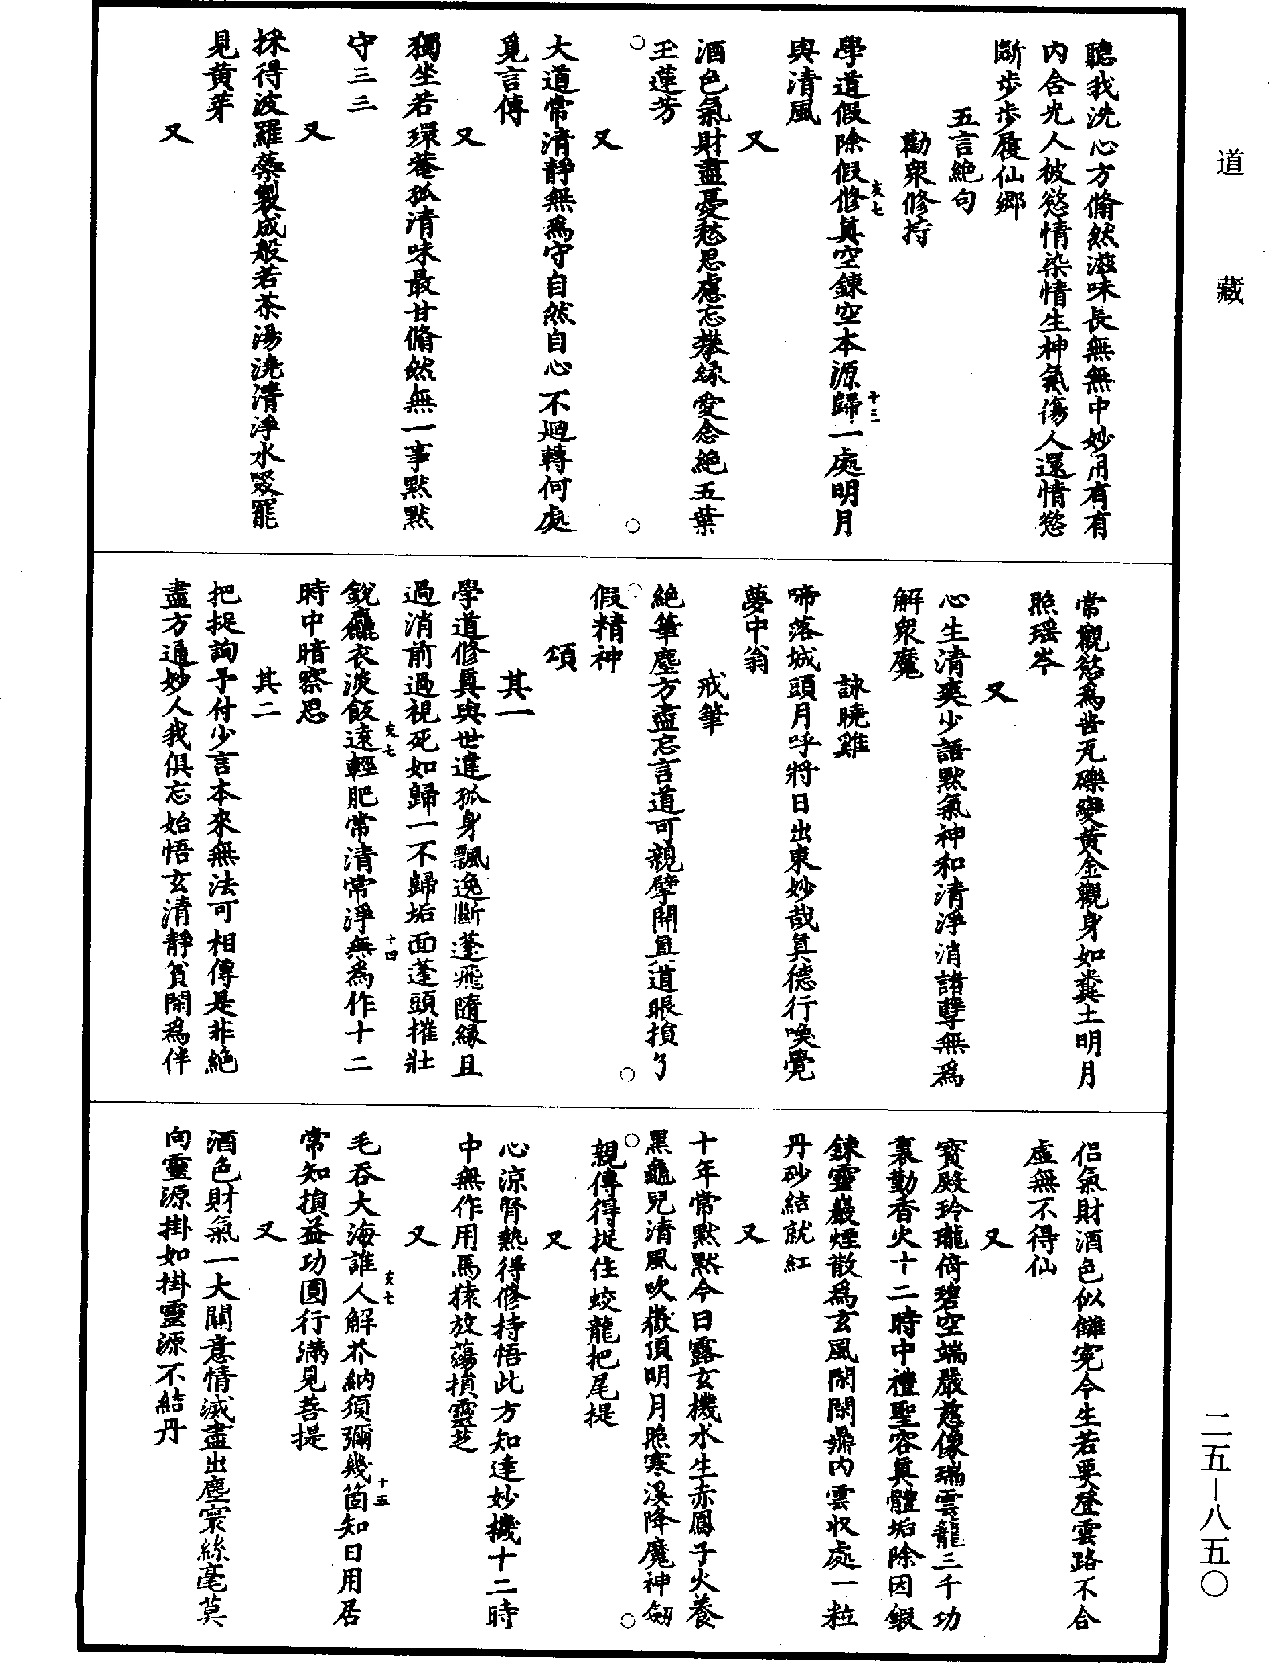 道藏
聽我洗心方翛然滋味長無無中妙用有有
內含光人被慾情染情生神氣傷人還情慾
斷步步履仙鄉
五言絕句
勸衆修持
學道假除假修眞空鍊空本源歸一處明月
與清風
又
酒色氣財盡憂愁思慮忘攀緣愛念絕五葉
玉蓮芳
又
大道常清靜無爲守自然自心不迴轉何處
覓言傳
又
獨坐若環菴孤清味最甘翛然無一事默默
守三三
又
採得波羅蘂製成般若茶湯澆清淨水啜罷
見黃芽
又
常觀慾爲苦瓦礫變黃金觀身如糞土明月
照瑤岑
又
心生清爽少語默氣神和清淨消諸孽無爲
解衆魔
詠曉雞
啼落城頭月呼將日出東妙哉眞德行喚覺
夢中翁
戒筆
絕筆塵方盡忘言道可親擘開眞道眼損了
假精神
頌
其一
學道修眞與世違孤身飄逸斷蓬飛隨緣且
過消前過視死如歸一不歸垢面蓬頭摧壯
銳麤衣淡飯遠輕肥常清常淨無爲作十二
時中暗察思
其二
把捉詢予付少言本來無法可相傳是非絕
盡方通妙人我俱忘始悟玄清靜貧閑爲伴
侶氣財酒色似讎寃今生若要登雲路不合
虛無不得仙
又
寳殿玲瓏倚碧空端嚴慈像瑞雲龍三千功
裏勤香火十二時中禮聖容眞體垢除因鍜
鍊靈巖煙散爲玄風閑閑鼎內雲収處一粒
丹砂結就紅
又
十年常默默今日露玄機水生赤鳳子火養
黑龜兒清風吹嶽頂明月照寒溪降魔神劒
親傳得捉住蛟龍把尾提
又
心涼腎熱得修持悟此方知達妙機十二時
中無作用馬猿放蕩損靈芝
又
毛吞大海誰人解芥納須彌幾箇知日用居
常知損益功圓行滿見菩提
又
酒色財氣一大關意情滅盡出塵寰絲毫莫
向靈源掛如掛靈源不結丹
亥七
十三
亥七
十四
亥七
十五
二五—八五〇